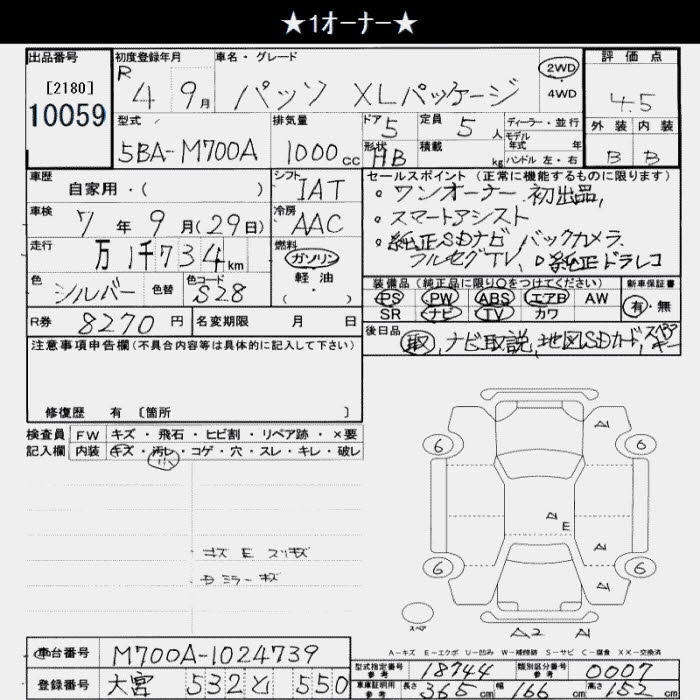 ★1オーナー★
出品番号
[2180]
10059
初度登録年月
R 4 9月
車名・グレード
パッソ XLパッケージ
2WD
4WD
評価点
4.5
外装 内装
B B
型式
5BA-M700A
排気量
1000cc
ドア 5
定員 5人
形状 HB
積載 kg
ディーラー・並行
モデル年式 年
ハンドル 左・右
車歴
自家用・( )
シフト
IAT
車検
7年9月(29日)
冷房
AAC
走行
万1千734km
燃料
ガソリン
軽油
( )
色
シルバー
色替
色コード
S28
R券
8270円
名変期限 月 日
セールスポイント(正常に機能するものに限ります)
・ワンオーナー 初出品,
・スマートアシスト
・純正SDナビ バックカメラ.
フルセグTV, ・純正ドラレコ
装備品(純正品に限り○をつけてください)
新車保証書
PS PW ABS エアB AW
SR ナビ TV カワ
有・無
後日品
取, ナビ取説, 地図SDカード, スペアキー
注意事項申告欄(不具合内容等は具体的に記入して下さい)
修復歴 有 〔箇所 〕
検査員記入欄
FW キズ・飛石・ヒビ割・リペア跡・×要
内装 キズ・汚レ・コゲ・穴・スレ・キレ・破レ
小
キズ E スリキズ
Dミラーキズ
6
A1
6
A1
E
A1
6
6
A1
スペア
A2 A1
A-キズ E-エクボ U-凹み W-補修跡 S-サビ C-腐食 XX-交換済
車台番号
M700A-1024739
登録番号
大宮 532 と 550
型式指定番号 参考
18744
類別区分番号 参考
0007
車庫証明用 参考
長さ 365cm
幅 166cm
高さ 152cm